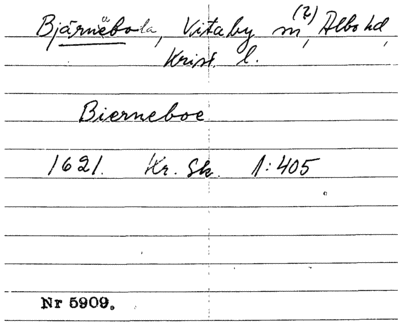 Bjärnëboda, Vitaby sn, (?) Albo hd,
Krist. l.
Bierneboe
1621. Kr. Sk. 1:405
Nr 5909.